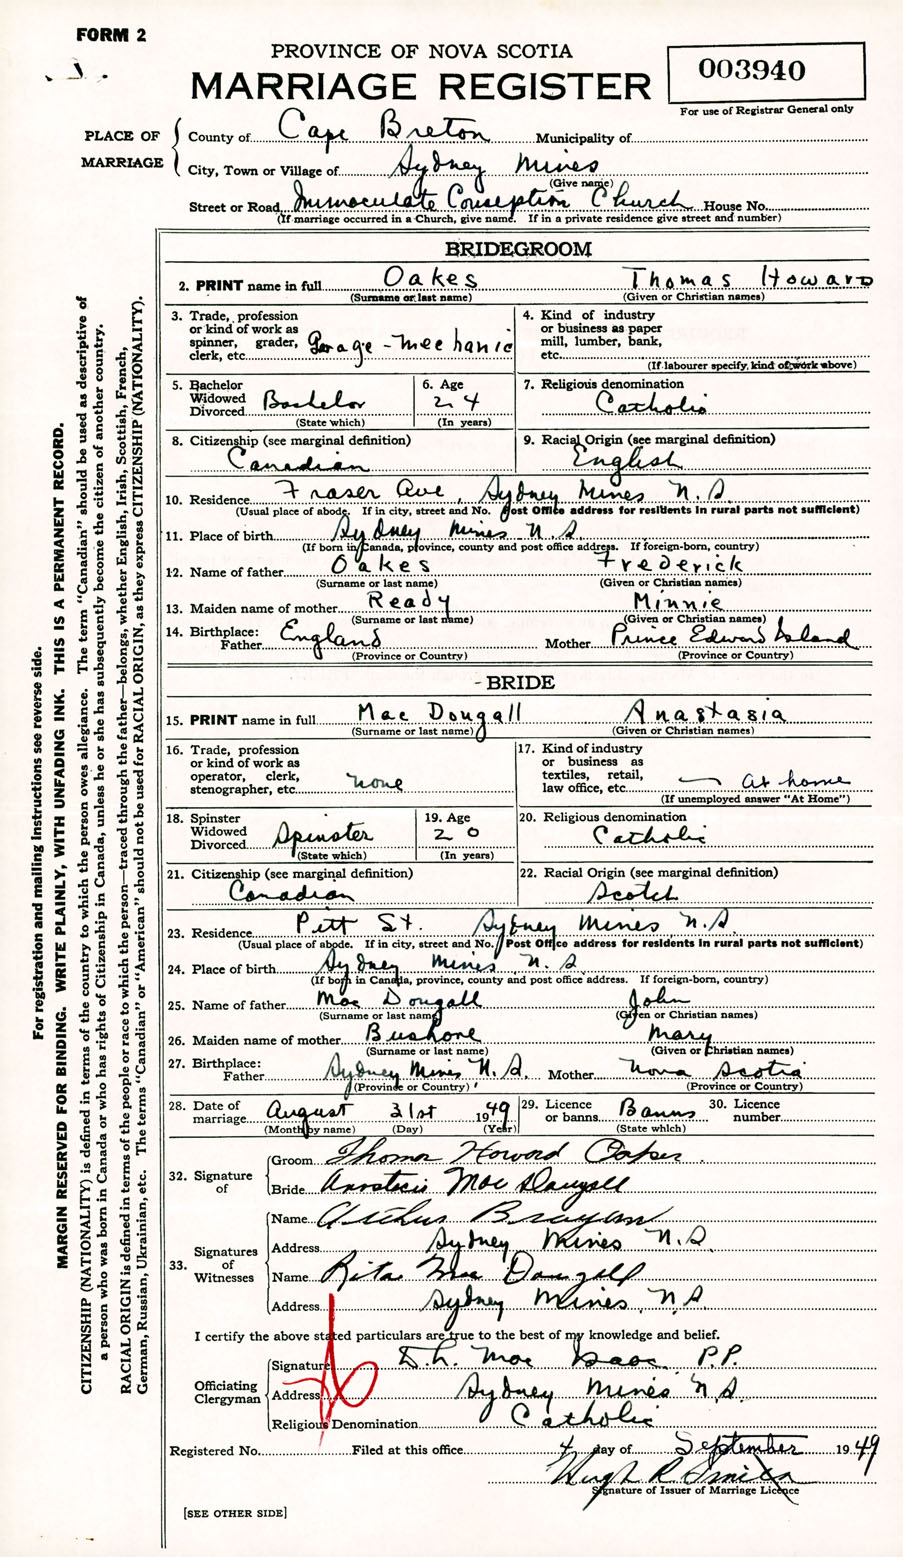 FORM 2
PROVINCE OF NOVA SCOTIA
MARRIAGE REGISTER
003940
For use of Registrar General only
PLACE OF MARRIAGE
County of Cape Breton Municipality of
City, Town or Village of Sydney Mines
(Give name)
Street or Road Immaculate Conseption Church House No.
(If marriage occurred in a Church, give name. If in a private residence give street and number)
BRIDEGROOM
2. PRINT name in full Oakes Thomas Howard
(Surname or last name) (Given or Christian names)
3. Trade, profession or kind of work as spinner, grader, clerk, etc. Garage-Mechanic
4. Kind of industry or business as paper mill, lumber, bank, etc.
(If labourer specify, kind of work above)
5. Bachelor Widowed Divorced Bachelor
(State which)
6. Age 24
(In years)
7. Religious denomination Catholic
8. Citizenship (see marginal definition) Canadian
9. Racial Origin (see marginal definition) English
10. Residence Fraser Ave, Sydney Mines N.S.
(Usual place of abode. If in city, street and No. Post Office address for residents in rural parts not sufficient)
11. Place of birth Sydney Mines N.S.
(If born in Canada, province, county and post office address. If foreign-born, country)
12. Name of father Oakes Frederick
(Surname or last name) (Given or Christian names)
13. Maiden name of mother Ready Minnie
(Surname or last name) (Given or Christian names)
14. Birthplace: Father England Mother Prince Edward Island
(Province or Country) (Province or Country)
BRIDE
15. PRINT name in full Mac Dougall Anastasia
(Surname or last name) (Given or Christian names)
16. Trade, profession or kind of work as operator, clerk, stenographer, etc. none
17. Kind of industry or business as textiles, retail, law office, etc. At home
(If unemployed answer "At Home")
18. Spinster Widowed Divorced Spinster
(State which)
19. Age 20
(In years)
20. Religious denomination Catholic
21. Citizenship (see marginal definition) Canadian
22. Racial Origin (see marginal definition) Scotch
23. Residence Pitt St. Sydney Mines N.S.
(Usual place of abode. If in city, street and No. Post Office address for residents in rural parts not sufficient)
24. Place of birth Sydney Mines N.S.
(If born in Canada, province, county and post office address. If foreign-born, country)
25. Name of father Mac Dougall John
(Surname or last name) (Given or Christian names)
26. Maiden name of mother Bushore Mary
(Surname or last name) (Given or Christian names)
27. Birthplace: Father Sydney Mines N.S. Mother Nova Scotia
(Province or Country) (Province or Country)
28. Date of marriage August 31st 1949
(Month by name) (Day) (Year)
29. Licence or banns Banns
(State which)
30. Licence number
32. Signature of
Groom Thomas Howard Oakes
Bride Anastasia Mac Dougall
33. Signatures of Witnesses
Name Arthur
Address Sydney Mines N.S.
Name Rita Mac Dougall
Address Sydney Mines, N.S.
I certify the above stated particulars are true to the best of my knowledge and belief.
Officiating Clergyman
Signature D.h. Mac Isaac P.P.
Address Sydney Mines N.S.
Religious Denomination Catholic
Registered No. Filed at this office 4 day of September 1949
Hugh R Smith
Signature of Issuer of Marriage Licence
[SEE OTHER SIDE]
For registration and mailing instructions see reverse side.
MARGIN RESERVED FOR BINDING. WRITE PLAINLY, WITH UNFADING INK. THIS IS A PERMANENT RECORD.
CITIZENSHIP (NATIONALITY) is defined in terms of the country to which the person owes allegiance. The term "Canadian" should be used as descriptive of
a person who was born in Canada or who has rights of Citizenship in Canada, unless he or she has subsequently become the citizen of another country.
RACIAL ORIGIN is defined in terms of the people or race to which the person—traced through the father—belongs, whether English, Irish, Scottish, French,
German, Russian, Ukrainian, etc. The terms "Canadian" or "American" should not be used for RACIAL ORIGIN, as they express CITIZENSHIP (NATIONALITY).